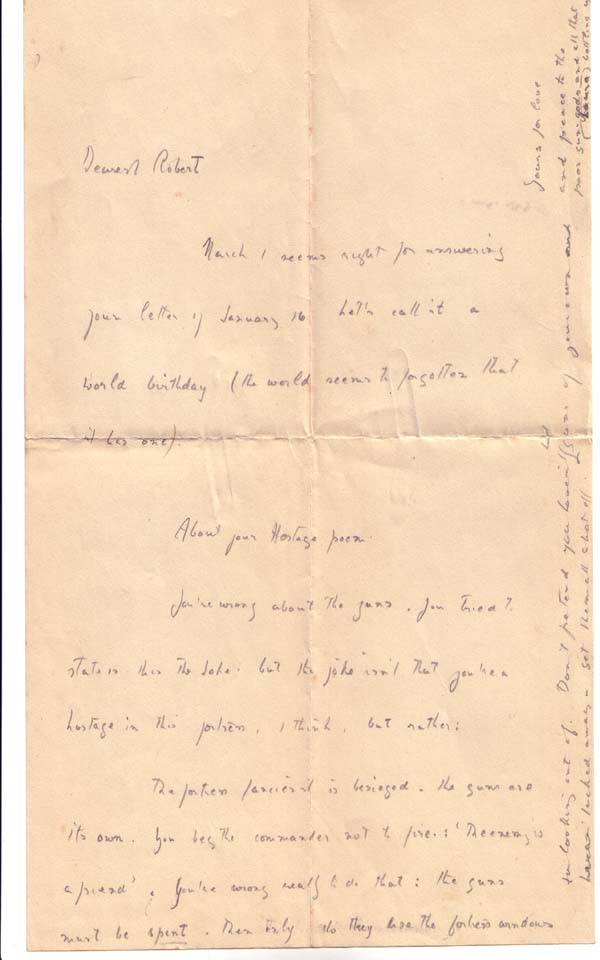 Dearest Robert
March 1 seems right for answering
your letter of January 16 Let's call it a
world birthday (the world seems to forgotten that
it has one).
About your Hostage poem.
You're wrong about the guns. You tried to
state in this the joke. but the joke isn't that you're a
hostage in this fortress, I think, but rather:
The fortress fancies it is besieged. the guns are
its own. You beg the commander not to fire: 'The enemy is
a friend'. You're wrong really to do that: the guns
must be spent. Then only do they use the fortress windows
for looking out of. Don't pretend you haven't guns of your own and
haven't locked away - get them all shot off.
but
and peace to the
poor sun-gods and all that
(Laura)
Yours for love